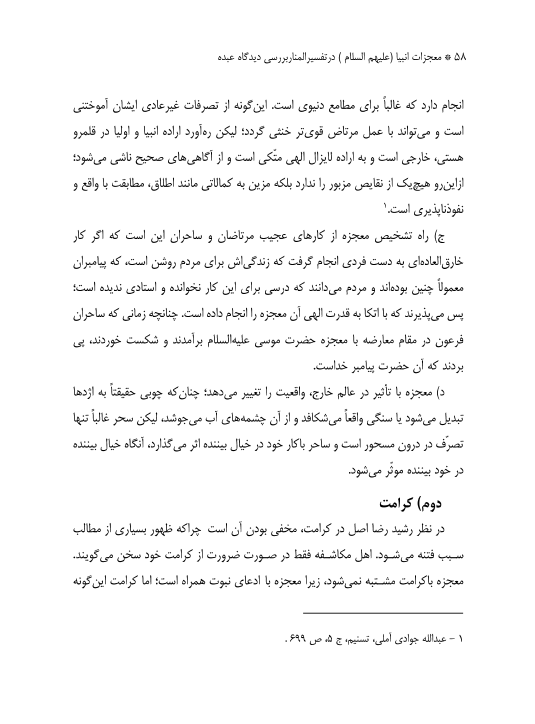 ۵۸ * معجزات انبیا (علیهم السلام ) درتفسیرالمناربررسی دیدگاه عبده
انجام دارد که غالباً برای مطامع دنیوی است. این‌گونه از تصرفات غیرعادی ایشان آموختنی
است و می‌تواند با عمل مرتاض قوی‌تر خنثی گردد؛ لیکن ره‌آورد اراده انبیا و اولیا در قلمرو
هستی، خارجی است و به اراده لایزال الهی متّکی است و از آگاهی‌های صحیح ناشی می‌شود؛
ازاین‌رو هیچ‌یک از نقایص مزبور را ندارد بلکه مزین به کمالاتی مانند اطلاق، مطابقت با واقع و
نفوذناپذیری است.۱
ج) راه تشخیص معجزه از کارهای عجیب مرتاضان و ساحران این است که اگر کار
خارق‌العاده‌ای به دست فردی انجام گرفت که زندگی‌اش برای مردم روشن است، که پیامبران
معمولاً چنین بوده‌اند و مردم می‌دانند که درسی برای این کار نخوانده و استادی ندیده است؛
پس می‌پذیرند که با اتکا به قدرت الهی آن معجزه را انجام داده است. چنانچه زمانی که ساحران
فرعون در مقام معارضه با معجزه حضرت موسی علیه‌السلام برآمدند و شکست خوردند، پی
بردند که آن حضرت پیامبر خداست.
د) معجزه با تأثیر در عالم خارج، واقعیت را تغییر می‌دهد؛ چنان‌که چوبی حقیقتاً به اژدها
تبدیل می‌شود یا سنگی واقعاً می‌شکافد و از آن چشمه‌های آب می‌جوشد، لیکن سحر غالباً تنها
تصرّف در درون مسحور است و ساحر باکار خود در خیال بیننده اثر می‌گذارد، آنگاه خیال بیننده
در خود بیننده موثّر می‌شود.
دوم) کرامت
در نظر رشید رضا اصل در کرامت، مخفی بودن آن است چراکه ظهور بسیاری از مطالب
سبب فتنه می‌شود. اهل مکاشفه فقط در صورت ضرورت از کرامت خود سخن می‌گویند.
معجزه باکرامت مشتبه نمی‌شود، زیرا معجزه با ادعای نبوت همراه است؛ اما کرامت این‌گونه
۱ - عبدالله جوادی آملی، تسنیم، ج ۵، ص ۶۹۹ .